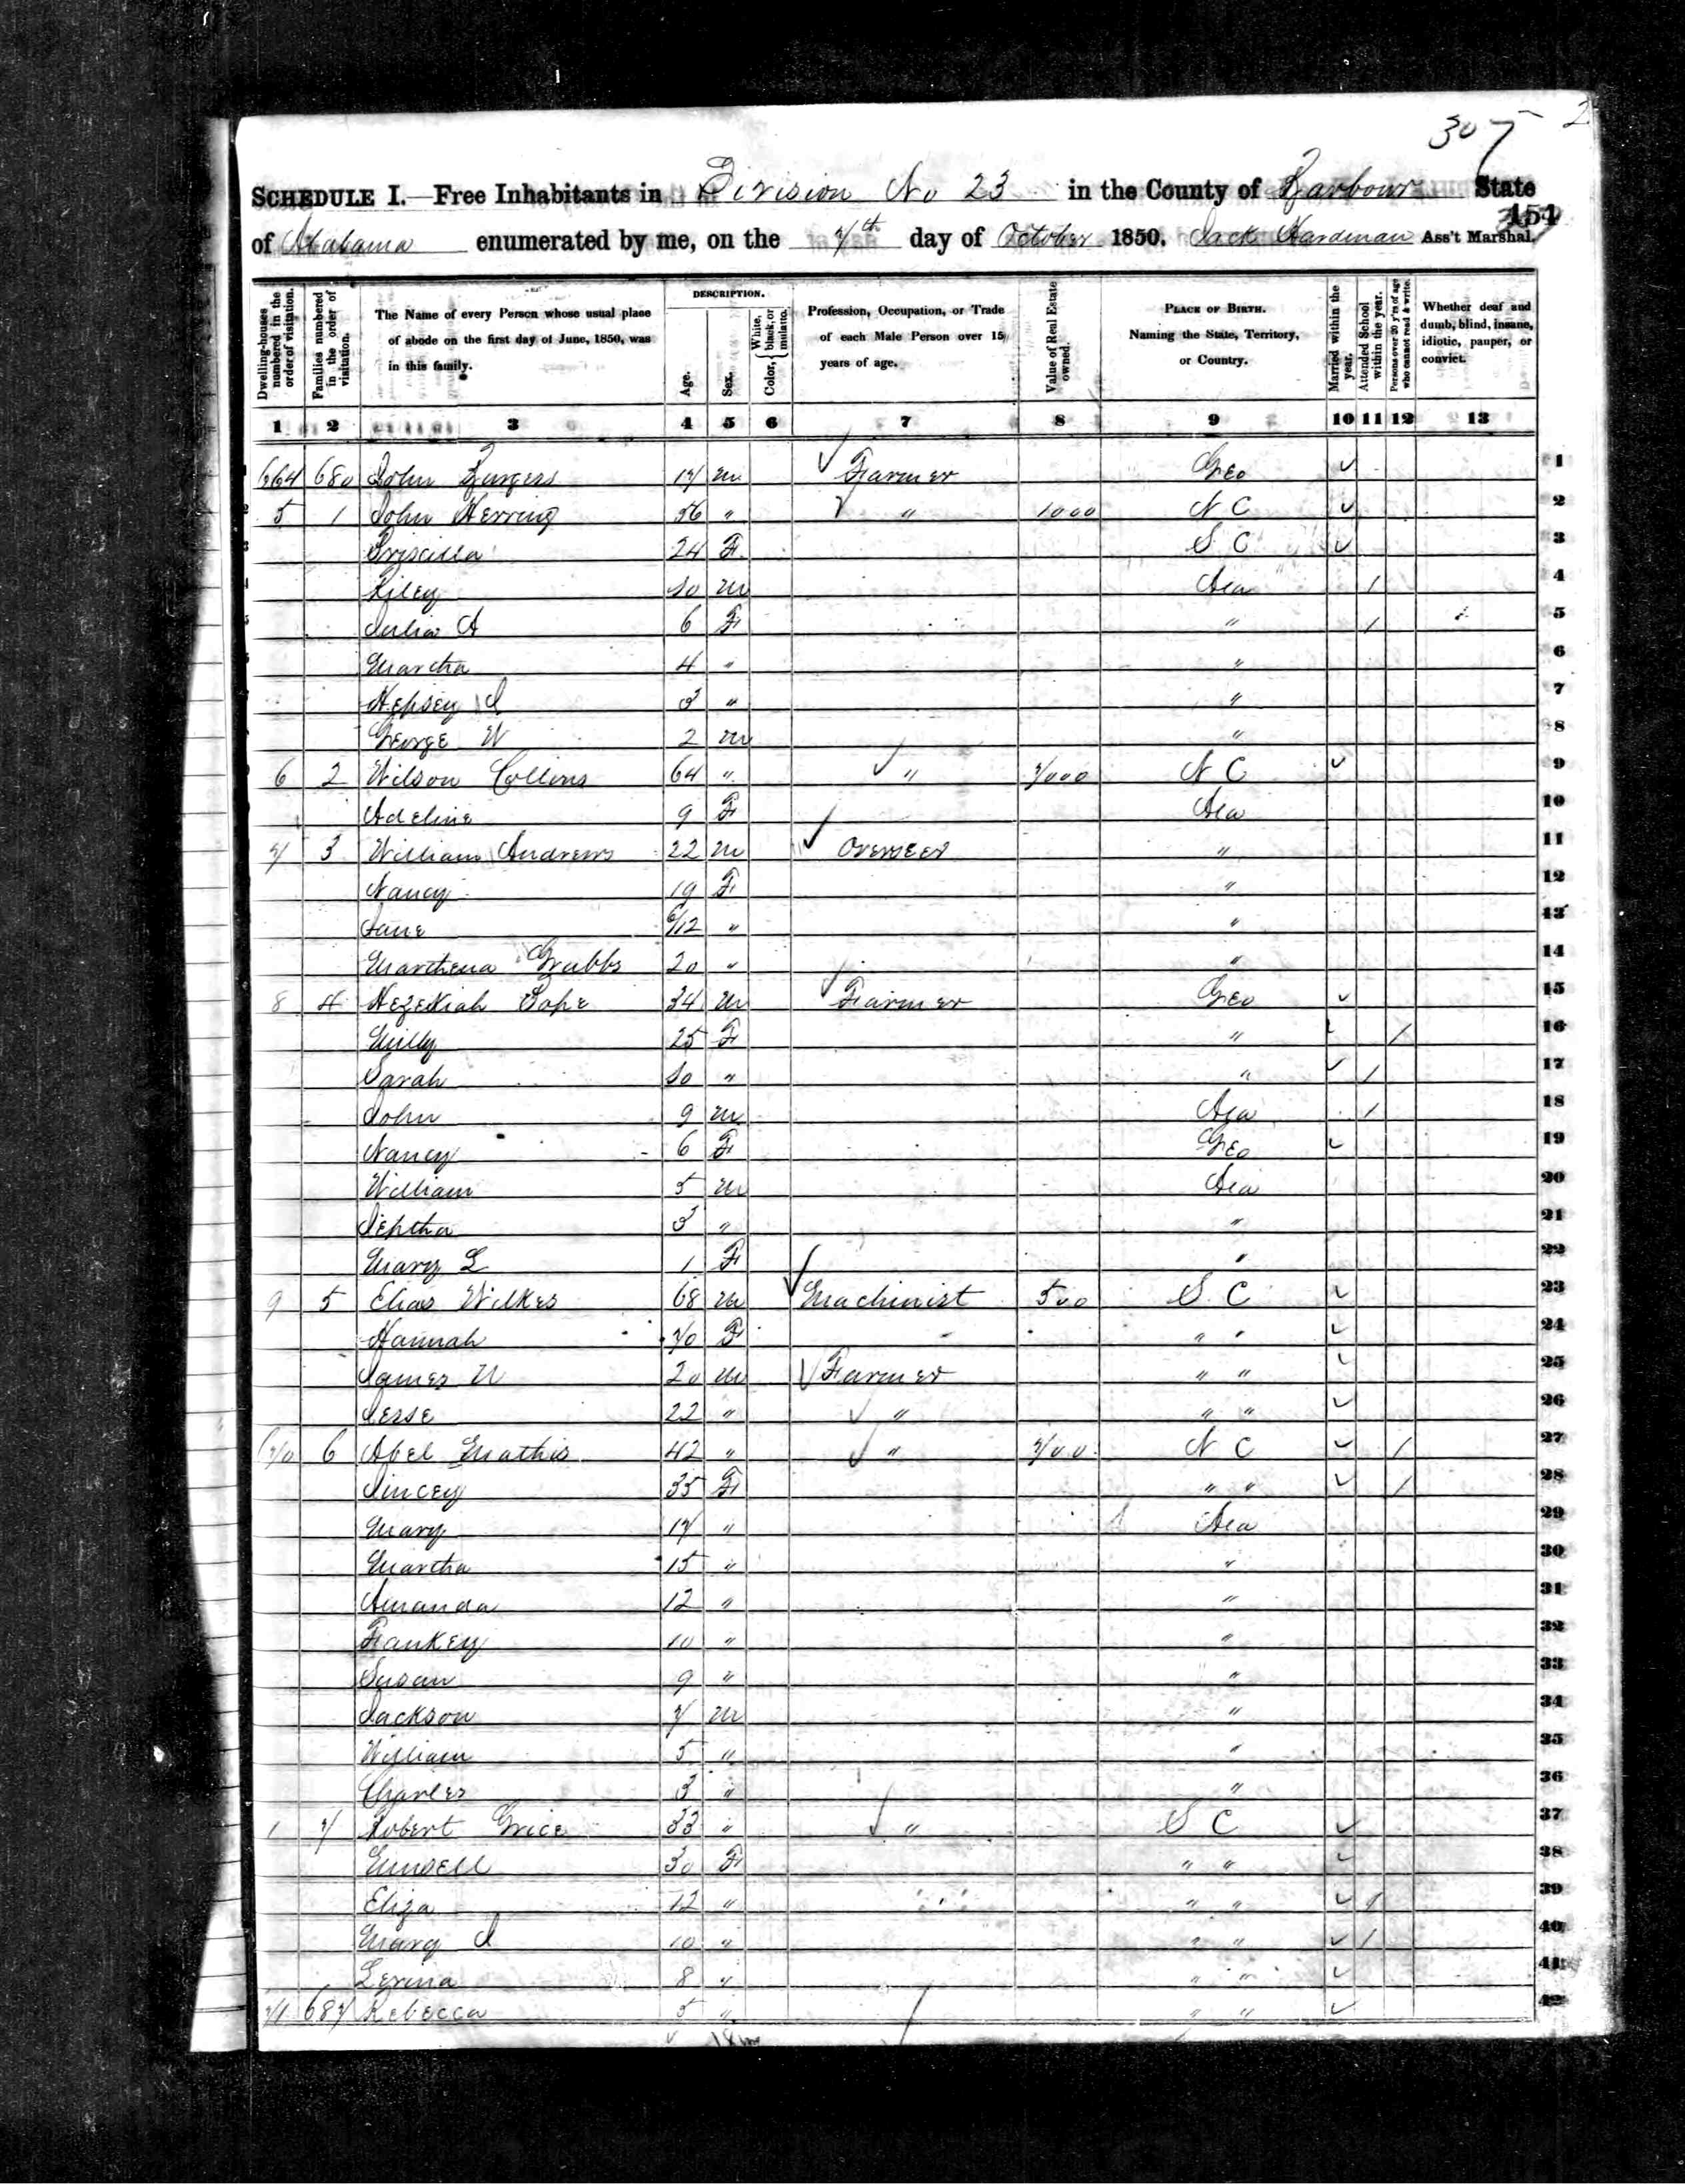 307 2
SCHEDULE I.—Free Inhabitants in Division No 23 in the County of Barbour State
451
of Alabama enumerated by me, on the 7th day of October 1850. Jack Hardman Ass't Marshal.
Dwelling-houses numbered in the order of visitation.
Families numbered in the order of visitation.
The Name of every Person whose usual place of abode on the first day of June, 1850, was in this family.
DESCRIPTION.
Age.
Sex.
Color, { White, black, or mulatto.
Profession, Occupation, or Trade of each Male Person over 15 years of age.
Value of Real Estate owned.
PLACE OF BIRTH. Naming the State, Territory, or Country.
Married within the year.
Attended School within the year.
Persons over 20 y'rs of age who cannot read & write.
Whether deaf and dumb, blind, insane, idiotic, pauper, or convict.
1 2 3 4 5 6 7 8 9 10 11 12 13
664 680 John Burgess 17 m ✓ Farmer Geo ✓ 1
5 1 John Herring 56 " ✓ " 1000 N C ✓ 2
Priscilla 24 F S C ✓ 3
Riley 10 m Ala 1 4
Julia A 6 F " 1 5
Martha 4 " " 6
Hepsey J 3 " " 7
George W 2 m " 8
6 2 Wilson Collins 64 " ✓ " 7000 N C ✓ 9
Adeline 9 F Ala 10
7 3 William Andrews 22 m ✓ Overseer " 11
Nancy 19 F " 12
Jane 6/12 " " 13
Marthena Grubbs 20 " " 14
8 4 Hezekiah Pope 34 m ✓ Farmer Geo ✓ 15
Milly 25 F " ✓ 1 16
Sarah 10 " " ✓ 1 17
John 9 m Ala 1 18
Nancy 6 F Geo ✓ 19
William 5 m Ala 20
Jeptha 3 " " 21
Mary L 1 F " 22
9 5 Elias Wilkes 68 m ✓ Machinist 500 S C ✓ 23
Hannah 70 F " " ✓ 24
James W 20 m ✓ Farmer " " ✓ 25
Jesse 22 " ✓ " " " ✓ 26
670 6 Abel Mathis 42 " ✓ " 700 N C ✓ 1 27
Jincey 35 F " " ✓ 1 28
Mary 17 " Ala 29
Martha 15 " " 30
Amanda 12 " " 31
Frankey 10 " " 32
Susan 9 " " 33
Jackson 7 m " 34
William 5 " " 35
Charles 3 " " 36
1 7 Robert Grice 33 " ✓ " S C ✓ 37
30 F " " ✓ 38
Eliza 12 " " " ✓ 1 39
Mary J 10 " " " ✓ 1 40
8 " " " ✓ 41
71 687 Rebecca 5 " " " ✓ 42